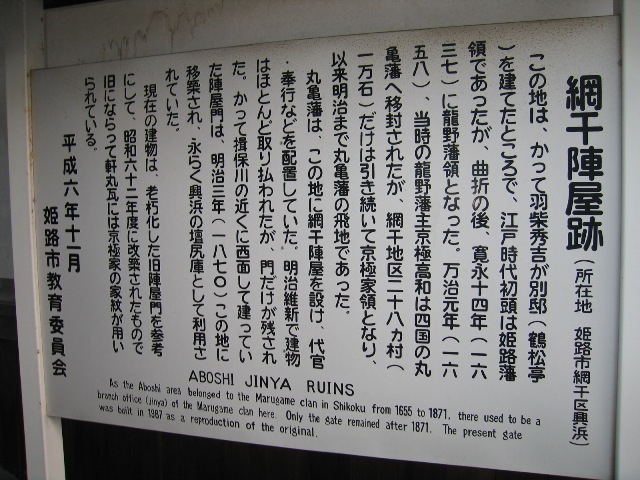 網干陣屋跡（所在地　姫路市網干区興浜）
この地は、かって羽柴秀吉が別邸（鶴松亭
）を建てたところで、江戸時代初頭は姫路藩
領であったが、曲折の後、寛永十四年（一六
三七）に龍野藩領となった。万治元年（一六
五八）、当時の龍野藩主京極高和は四国の丸
亀藩へ移封されたが、網干地区二十八ヵ村（
一万石）だけは引き続いて京極家領となり、
以来明治まで丸亀藩の飛地であった。
丸亀藩は、この地に網干陣屋を設け、代官
・奉行などを配置していた。明治維新で建物
はほとんど取り払われたが、門だけが残され
た。かって揖保川の近くに西面して建ってい
た陣屋門は、明治三年（一八七〇）この地に
移築され、永らく興浜の壇尻庫として利用さ
れていた。
現在の建物は、老朽化した旧陣屋門を参考
にして、昭和六十二年度に改築されたもので
旧にならって軒丸瓦には京極家の家紋が用い
られている。
平成六年十一月
姫路市教育委員会
ABOSHI JINYA RUINS
As the Aboshi area belonged to the Marugame clan in Shikoku from 1655 to 1871, there used to be a
branch office (jinya) of the Marugame clan here. Only the gate remained after 1871. The present gate
was built in 1987 as a reproduction of the original.